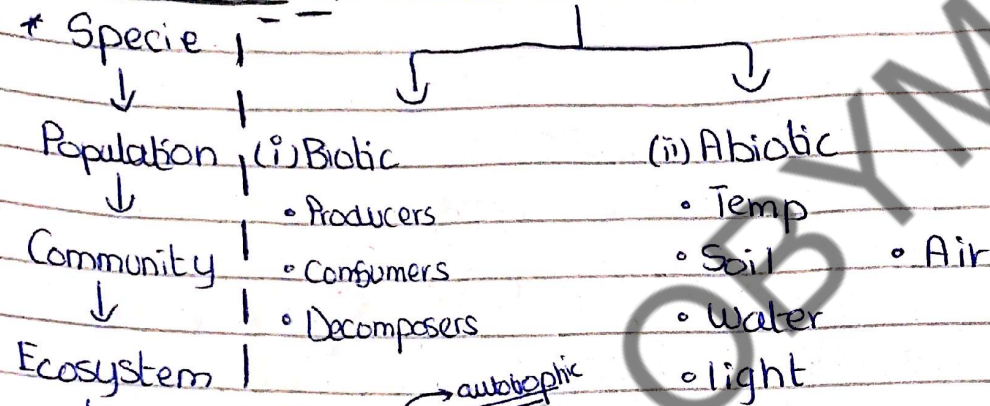 * Specie
↓
Population
↓
Community
↓
Ecosystem
(i) Biotic
• Producers
• Consumers
• Decomposers
(ii) Abiotic
• Temp
• Soil • Air
• Water
• light
→ autotophic
OBYM